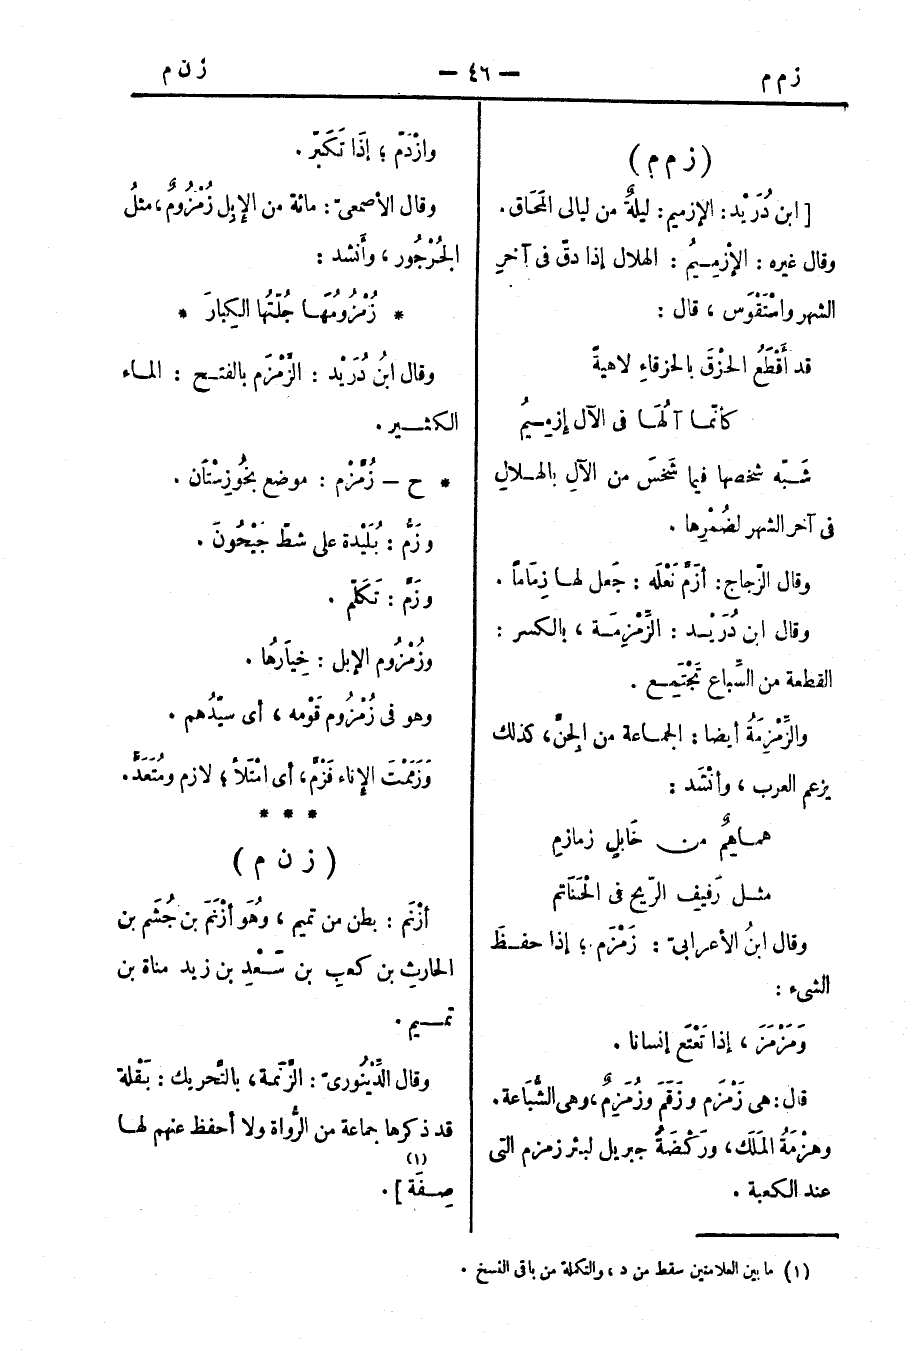 ز م م
— ٤٦ —
ز ن م
( ز م م )
[ ابن دُرَيْد : الإزميم : ليلةٌ من ليالى المَحَاق .
وقال غيره : الإزمِـيـمُ : الهلال إذا دقّ فى آخرِ
الشهر واسْتَقْوَس ، قال :
قد أَقْطَعُ الخَرْقَ بالخرقاءِ لاهيةً
كأنّمـا آلُهَـا فى الآل إزميـمُ
شَـبّه شخصها فيما شَخَصَ من الآلِ بالهـلالِ
فى آخر الشهر لضُمْرِها .
وقال الزّجاج : أزَمَّ نَعْلَه : جَعل لهـا زِمَاماً .
وقال ابن دُرَيْـد : الزِّمْزِمَـة ، بالكسر :
القطعة من السِّباع تَجْتَمِـع .
والزِّمْزِمَةُ أيضا : الجمـاعة من الجنّ ، كذلك
يزعم العرب ، وأنْشَد :
همـاهِمٌ من خَابِلٍ زمازمِ
مثـل رَفيفِ الرّيح فى الحَنَاتم
وقال ابنُ الأعرابىّ : زَمْزَم ؛ إذا حفـظَ
الشىء :
وَمَزْمَزَ ، إذا تَعْتَع إنسانا .
قال : هى زَمْزَم وزَمَّمَ وزُمَزِمٌ ، وهى الشُّبَاعة .
وهزْمَةُ المَلَك ، ورَكْضَةُ جبريل لبئر زمزم التى
عند الكعبة .
وازْدَمّ ؛ إذَا تَكَبّر .
وقال الأصمعىّ : مائة من الإبِل زُمْزُومٌ ، مثلُ
الجُرْجُور ، وأنشد :
* زُمْزُومُهَـا جُلّتُها الكِبارَ *
وقال ابنُ دُرَيْد : الزَّمْزَم بالفتـح : المـاء
الكثـير .
* ح — زُمَّزْم : موضع بخُوزِسْتَان .
وزَمُّ : بُلَيْدة على شطّ جَيْحُونَ .
وزَمَّ : تَكَلّم .
وزُمْزُوم الإبل : خِيَارُها .
وهو فى زُمْزُوم قَوْمه ، أى سيّدُهم .
وَزَمَمْتَ الإناء فَزَمَّ ، أى امْتَلأَ ؛ لازم ومُتَعَدٍّ .
* * *
( ز ن م )
أزْنَم : بطن من تميم ، وهُوَ أزْنَمَ بن جُشَم بن
الحارثِ بن كعبِ بن سَـعْدِ بن زيد مناة بن
تمـيم .
وقال الدِّينَورىّ : الزَّنَمة ، بالتَّحريك : بَقْلة
قد ذكرها جماعة من الرُّواة ولا أحفظ عنهم لهـا
صِفَـة ] . (١)
(١) ما بين العلامتين سقط من د ، والتكملة من باقى النسخ .